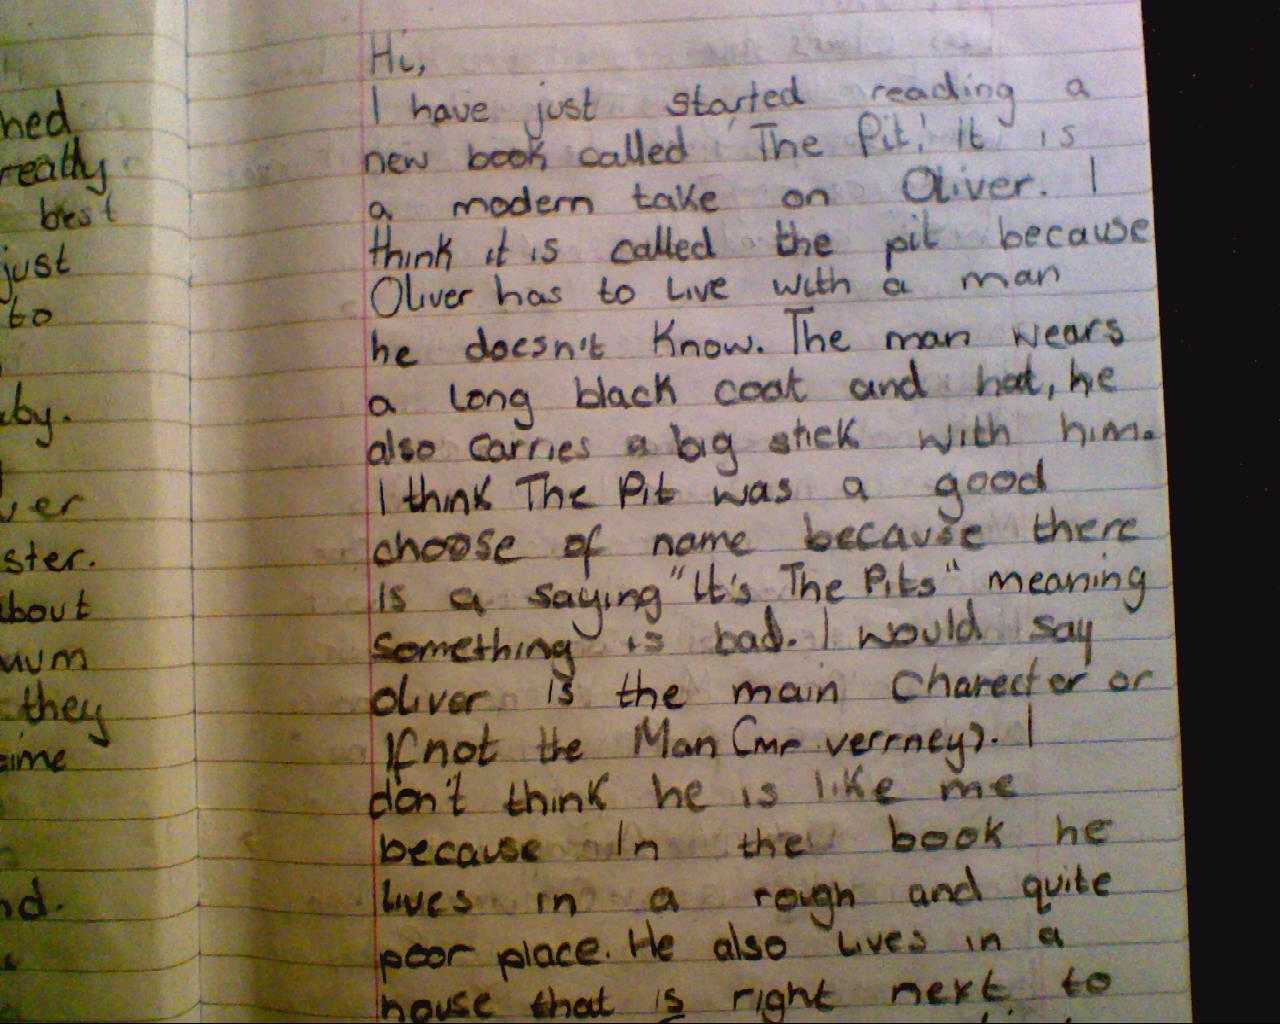 hed
really
best
just
to
by.
er
ster.
about
mum
they
time
nd.
Hi,
I have just started reading a
new book called 'The Pit.' It is
a modern take on Oliver. I
think it is called the pit because
Oliver has to live with a man
he doesn't know. The man wears
a long black coat and hat, he
also carries a big stick with him.
I think The Pit was a good
choose of name because there
is a saying "It's The Pits" meaning
something is bad. I would say
oliver is the main charecter or
if not the Man (mr verrney). I
don't think he is like me
because in the book he
lives in a rough and quite
poor place. He also lives in a
house that is right next to